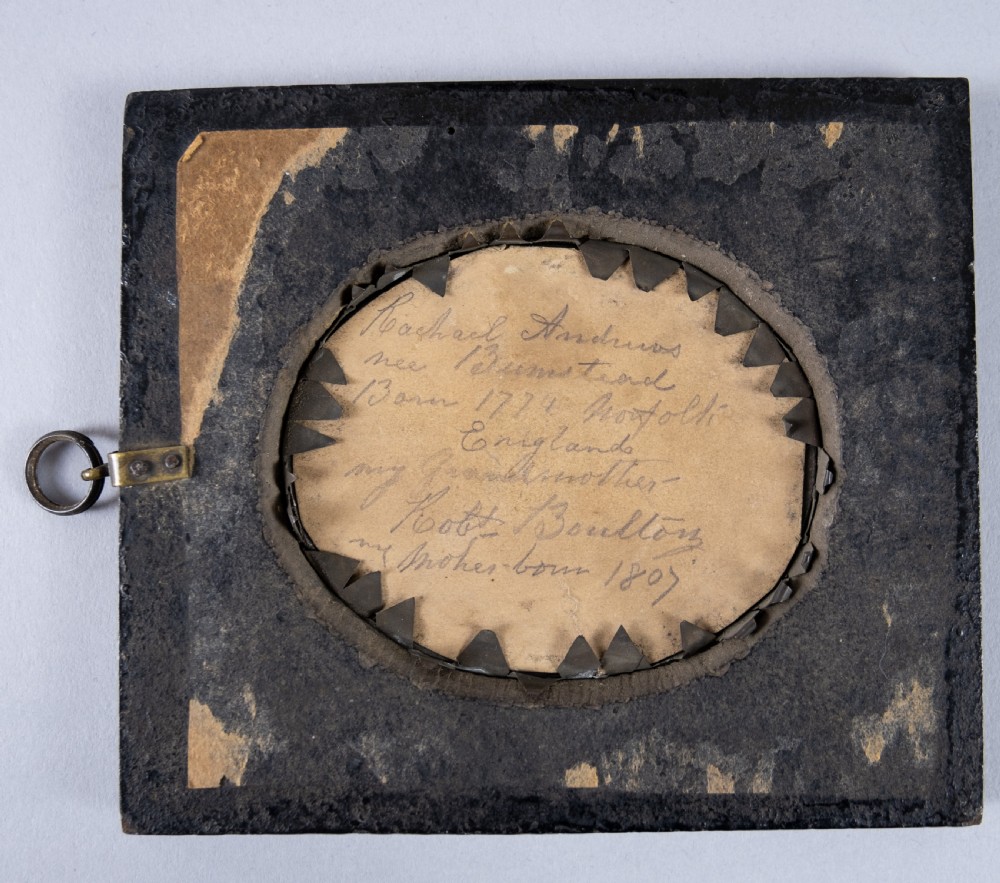 Rachael Andrews
nee Bumstead
Born 1771 Norfolk
England
my Grandmother
Robt Boulton
my Moher born 1807